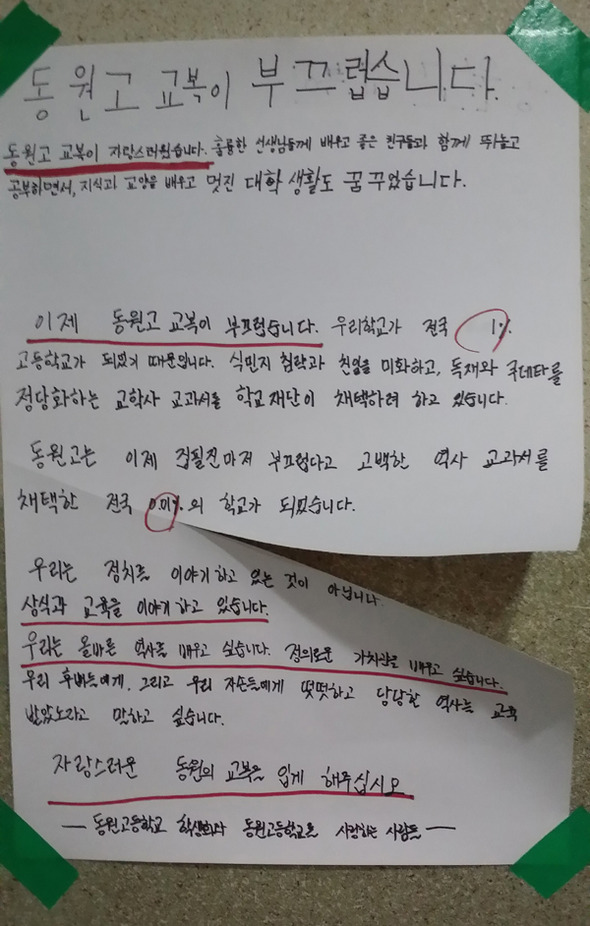 동원고 교복이 부끄럽습니다.
동원고 교복이 자랑스러웠습니다. 훌륭한 선생님들께 배우고 좋은 친구들과 함께 뛰놀고
공부하면서, 지식과 교양을 배우고 멋진 대학 생활도 꿈 꾸었습니다.
이제 동원고 교복이 부끄럽습니다. 우리학교가 전국 1%
고등학교가 되었기 때문입니다. 식민지 침략과 친일을 미화하고, 독재와 쿠데타를
정당화하는 교학사 교과서를 학교재단이 채택하려 하고 있습니다.
동원고는 이제 집필진마저 부끄럽다고 고백한 역사 교과서를
채택한 전국 0.01%의 학교가 되었습니다.
우리는 정치를 이야기하고 있는 것이 아닙니다.
상식과 교육을 이야기하고 있습니다.
우리는 올바른 역사를 배우고 싶습니다. 정의로운 가치관을 배우고 싶습니다.
우리 후배들에게, 그리고 우리 자손들에게 떳떳하고 당당한 역사를 교육
받았노라고 말하고 싶습니다.
자랑스러운 동원의 교복을 입게 해주십시오
— 동원고등학교 학생회와 동원고등학교를 사랑하는 사람들 —